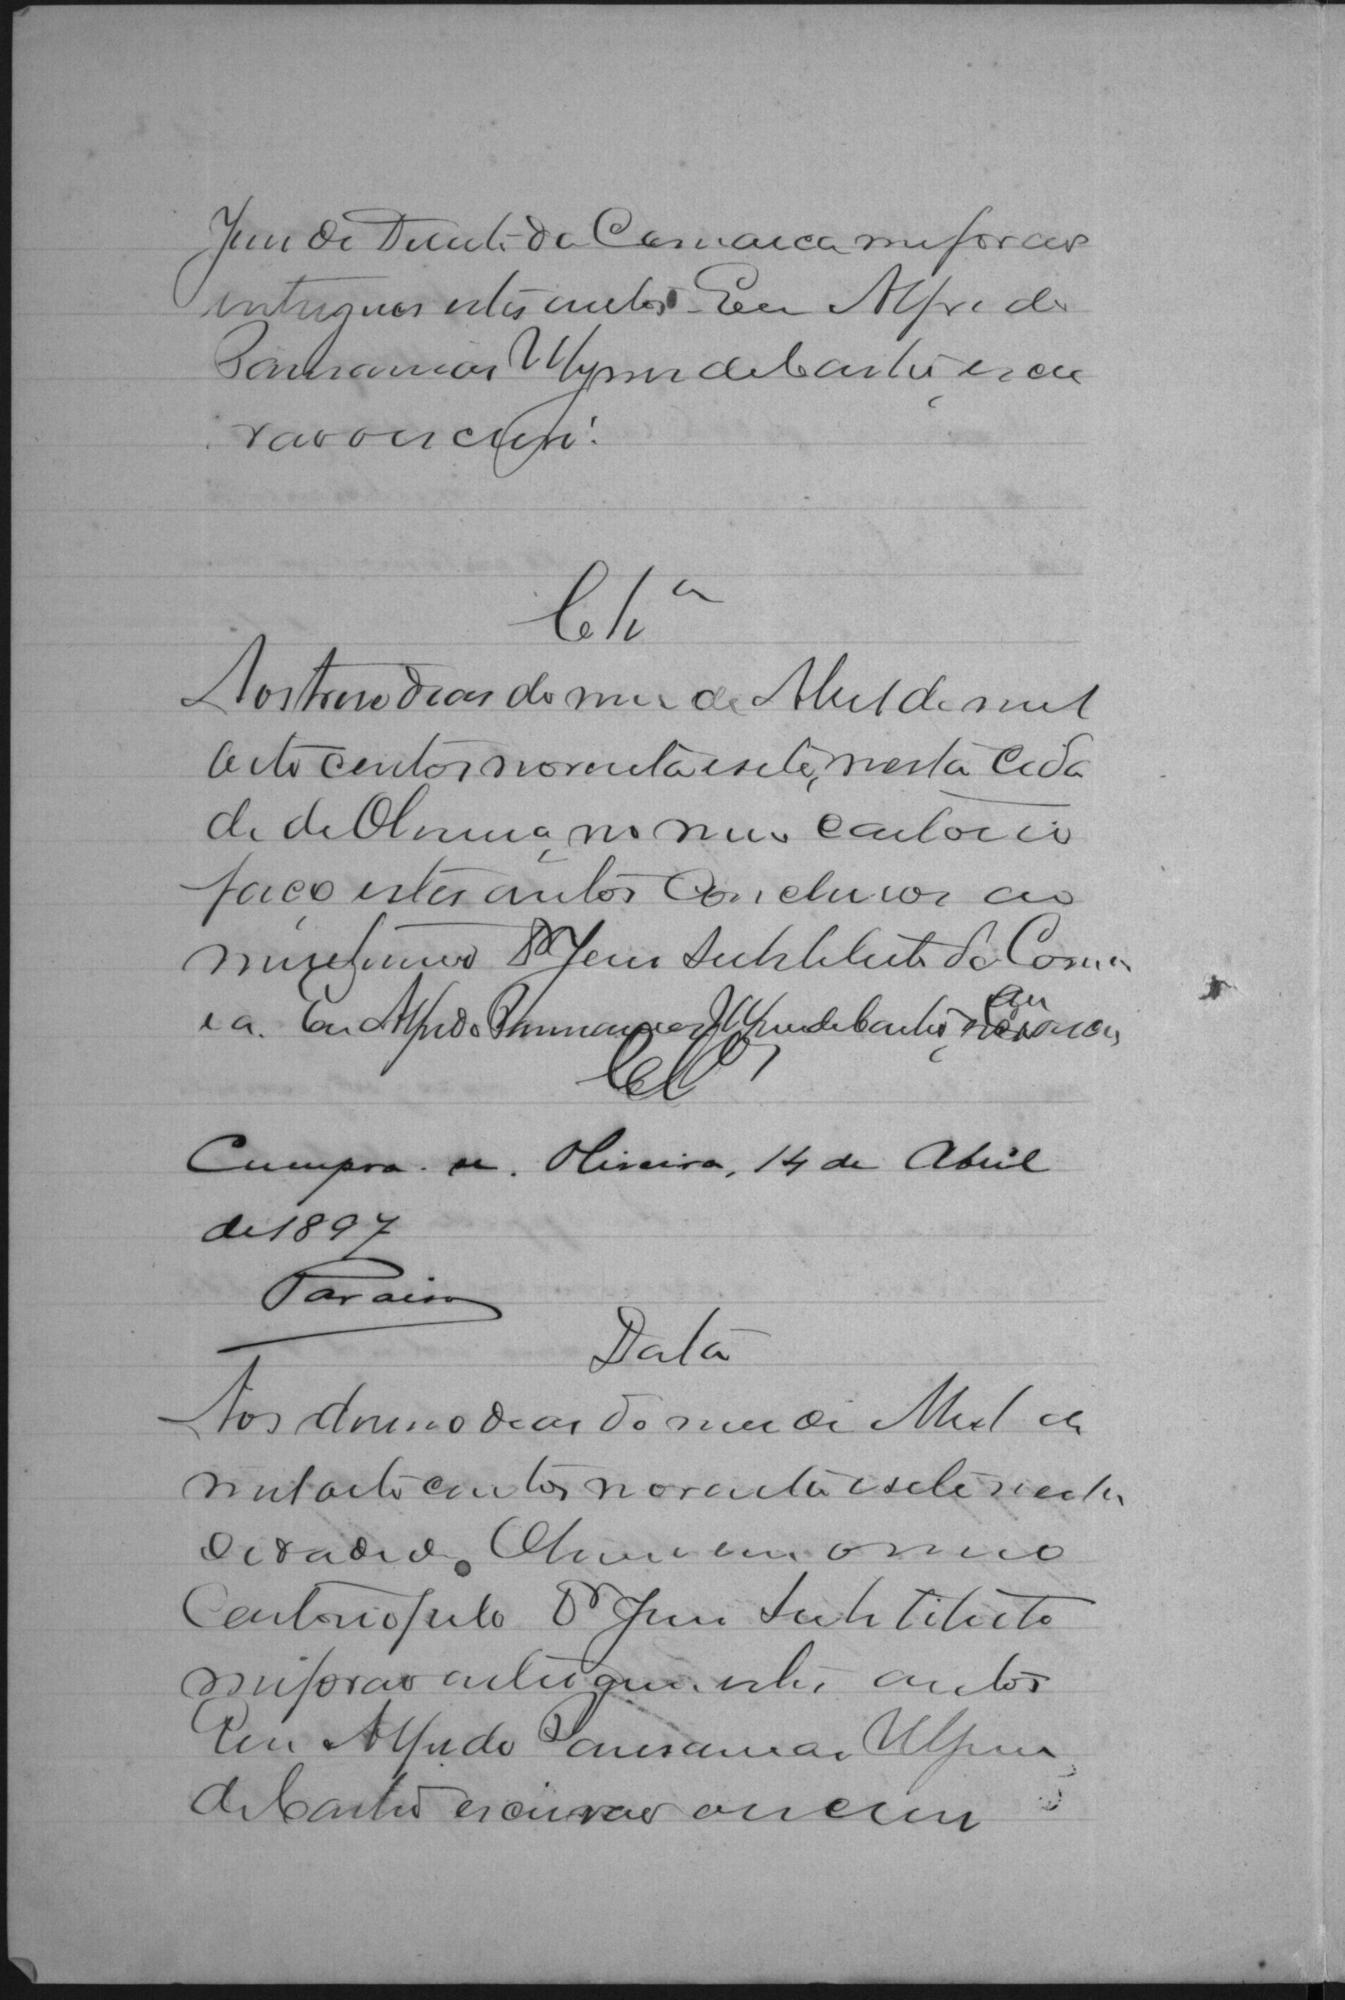 Juis de Direito da Comarca me forão
entregues estes autos. Eu Alfredo
Pausanias de Castro, escri
vão o escrevi.
Clh.ª
Aos treze dias do mes de Abril de mil
oito centos noventa e sete, nesta cida
de de Oliveira, no meu cartorio
faço estes autos conclusos ao
meretissimo Dr Juis Substituto da Comar
ca. Eu Alfredo Pausanias de Castro,
Cls
Cumpra-se. Oliveira, 14 de Abril
de 1897
Paraiso
Data
Aos dias do mes de Abril de
mil oito centos noventa e sete nesta
cidade de Oliveira em o meo
Cartorio pelo Dr Juis Substituto
me forão entregues estes autos
Eu Alfredo Pausanias
de Castro escrivão o escrevi